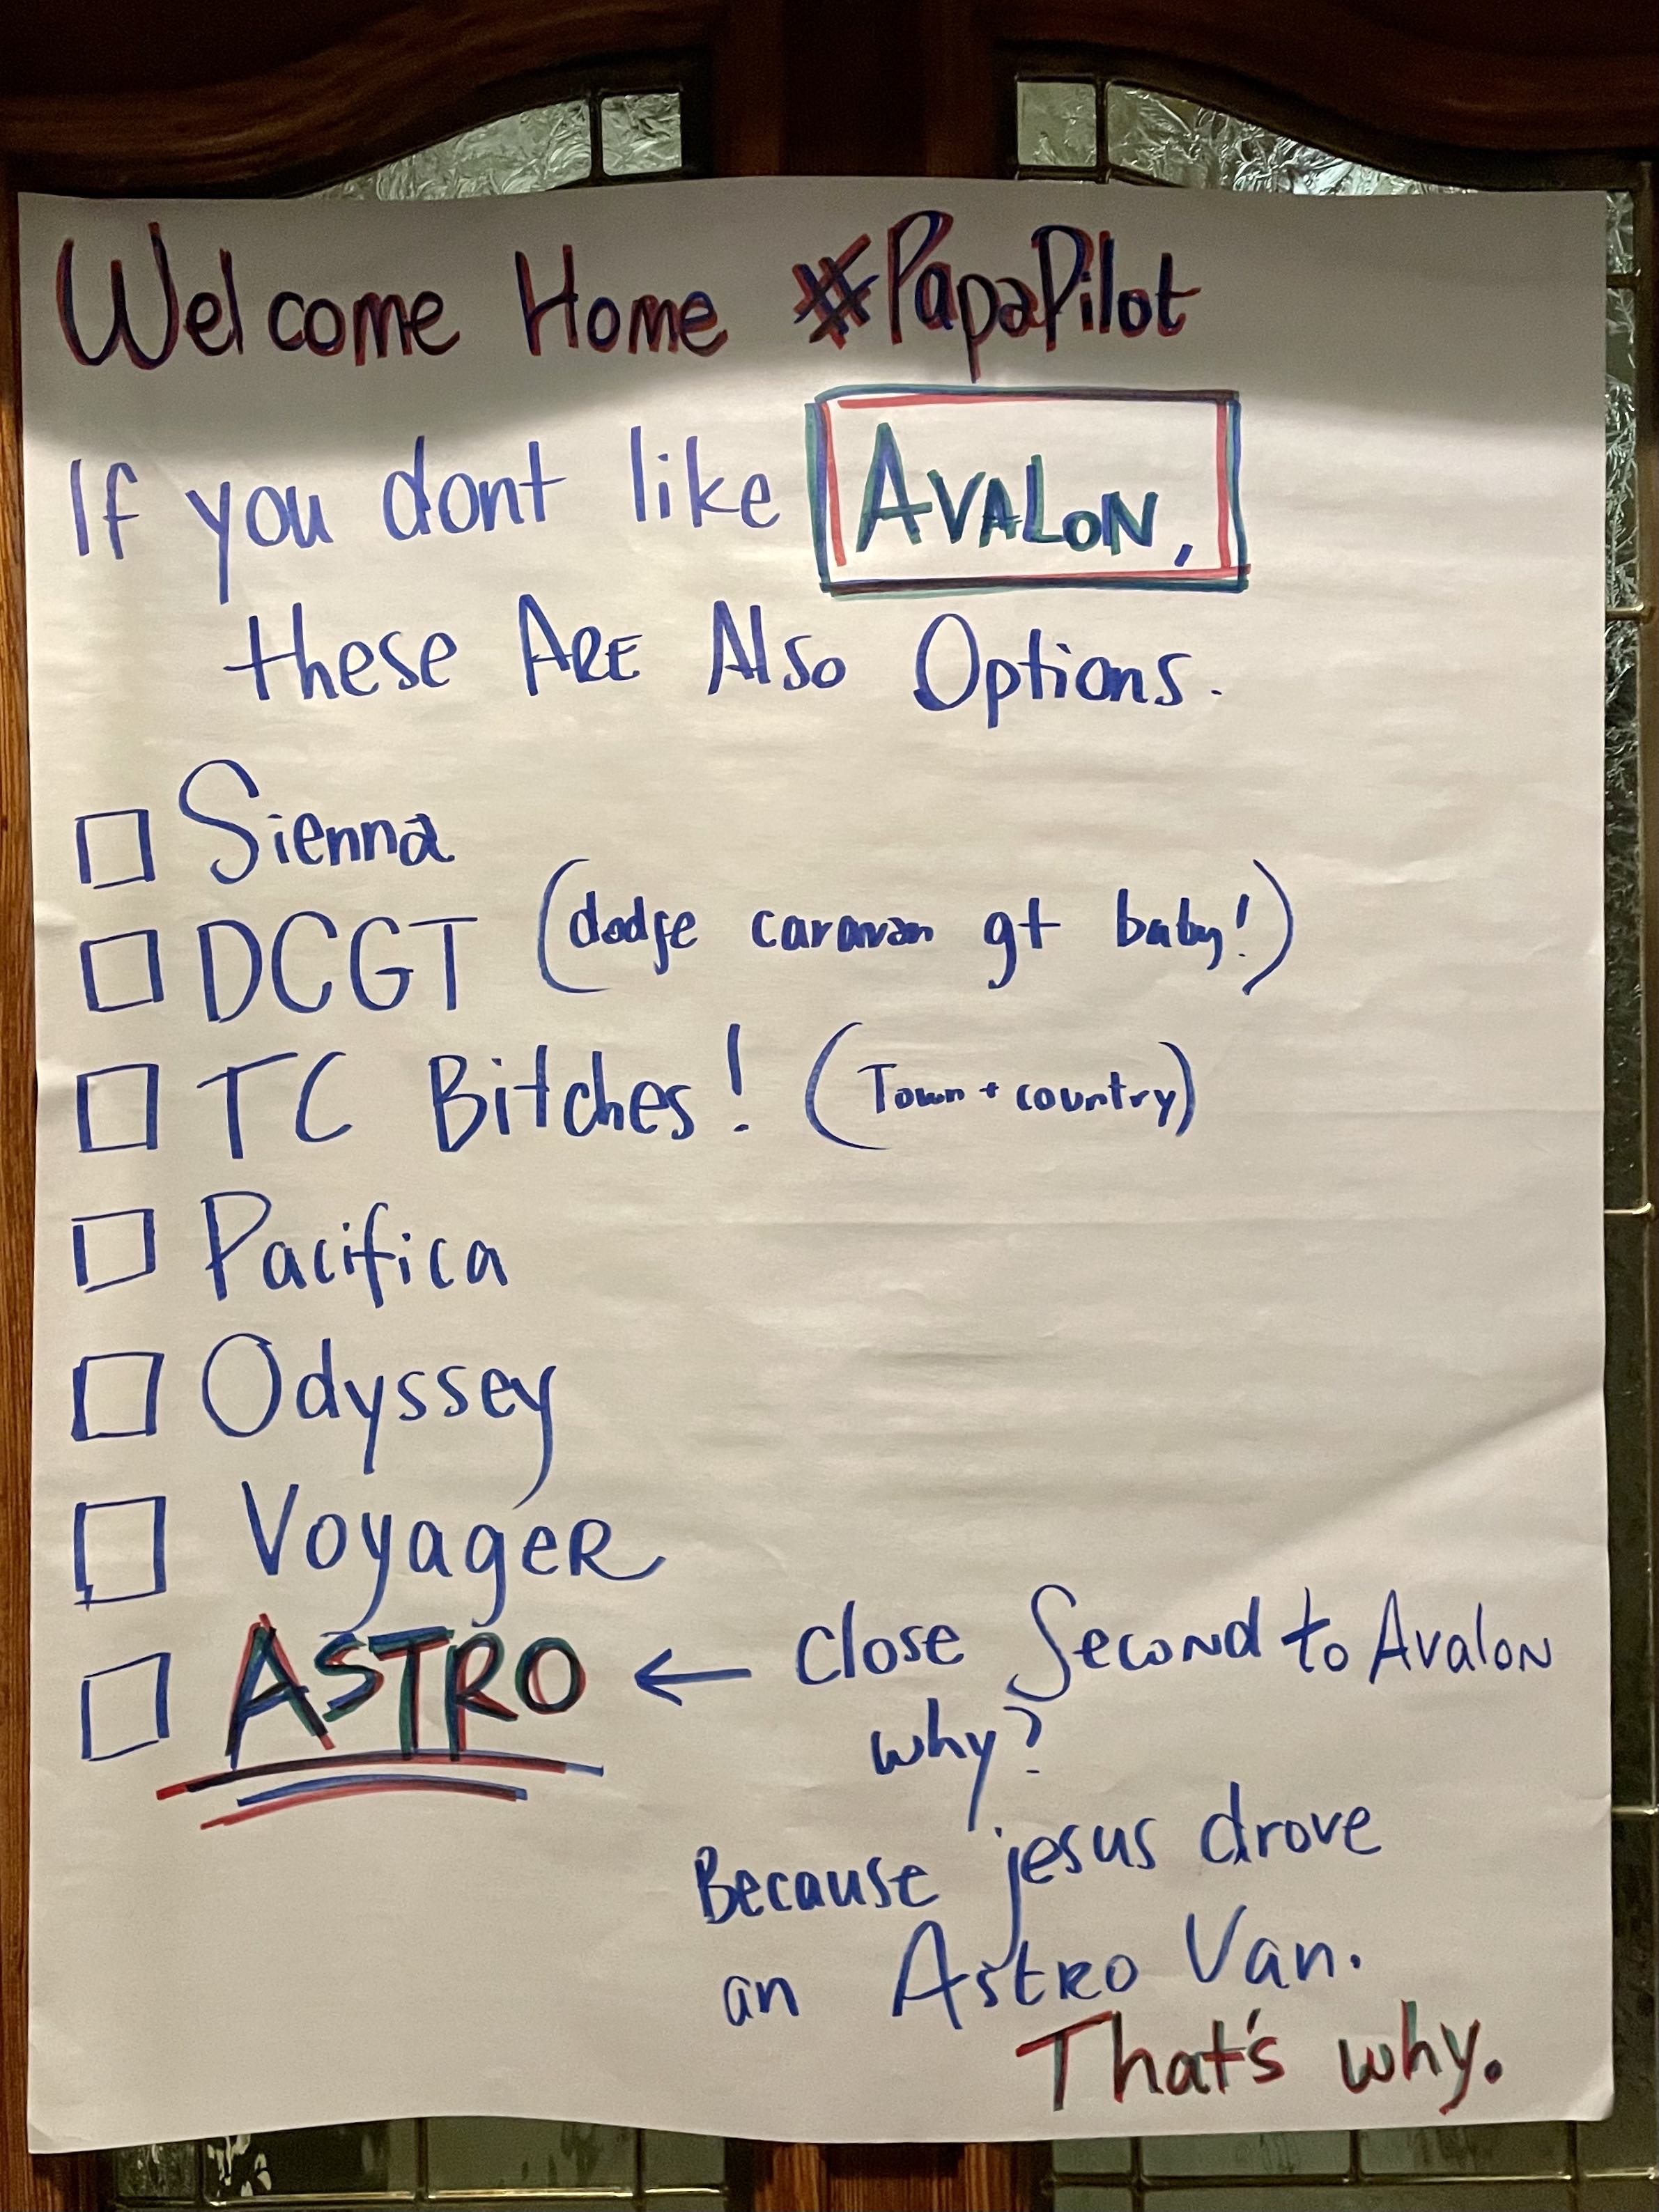 Welcome Home #PapaPilot
If you dont like AVALON,
these ARE Also Options.
Sienna
DCGT (dodge caravan gt baby!)
TC Bitches! (Town + country)
Pacifica
Odyssey
VoyageR
ASTRO ← close Second to Avalon
why?
Because jesus drove
an Astro Van.
That's why.